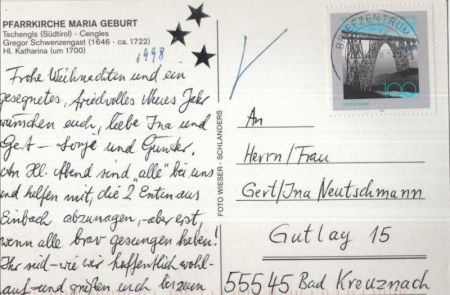 PFARRKIRCHE MARIA GEBURT
Tschengls (Südtirol) - Cengles
Gregor Schwenzengast (1646 - ca. 1722)
Hl. Katharina (um 1700)
1998
Frohe Weihnachten und ein
gesegnetes, friedvolles Neues Jahr
wünschen euch, liebe Ina und
Gert - Sonje und Gunter.
Am Hl. Abend sind "alle" bei uns
und helfen mit, die 2 Enten aus
Einbach abzunagen, - aber erst,
wenn alle brav gesungen haben!
Ihr seid - wie wir hoffentlich wohl-
auf - und grüßen euch herzem
FOTO WIESER - SCHLANDERS
BRIEFZENTRUM
DEUTSCHLAND
100
An
Herrn/Frau
Gert/Ina Neutschmann
Gutlay 15
55545 Bad Kreuznach